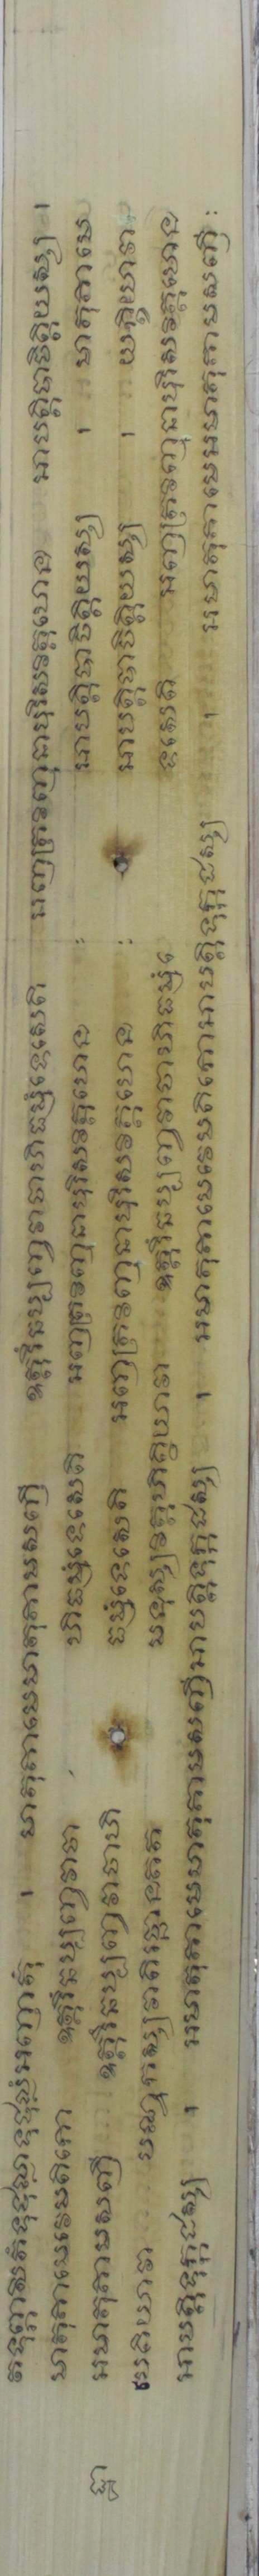 តទុព្ភាសិតំទុដ្ឋុល្លាទុដ្ឋុល្លំអញ្ញាតុំ ។ មាតុគាមេមាតុគាមសញ្ញី ឧត្តរឹឆប្បញ្ចវាចាហិធម្មំទេសេតិ អញ្ញត្រវិញ្ញុនាបុរិសវិគ្គហេន អាបត្តិបាចិត្តិយស្ស ។
មាតុគាមេវេមតិកោ ឧត្តរឹឆប្បញ្ចវាចា ហិធម្មំទេសេតិ អញ្ញត្រវិញ្ញុនាបុរិសវិគ្គហេន : អាបត្តិបាចិត្តិយស្ស ។ មាតុគាមេ
អមាតុគាមសញ្ញី ឧត្តរឹឆប្បញ្ចវាចាហិ ធម្មំទេសេតិ អញ្ញត្រវិញ្ញុនាបុរិសវិគ្គហេន : អាបត្តិបាចិត្តិយស្ស ។ យក្ខិយាវា
បេតិយាវា បណ្ឌកស្សវាតិរច្ឆានគត មនុស្សវិគ្គហិត្ថិយាវា ឧត្តរឹឆប្បញ្ចវាចាហិធម្មំទេសេតិ អញ្ញត្រវិញ្ញុនាបុរិសវិគ្គហេន
អាបត្តិទុក្កដស្ស ។ អមាតុគាមេមាតុគាមសញ្ញីអាបត្តិទុក្កដស្ស ។ អមាតុគាមេវេមតិកោអាបត្តិទុក្កដស្ស ។ អមាតុគាមេអមាតុគាមសញ្ញី :